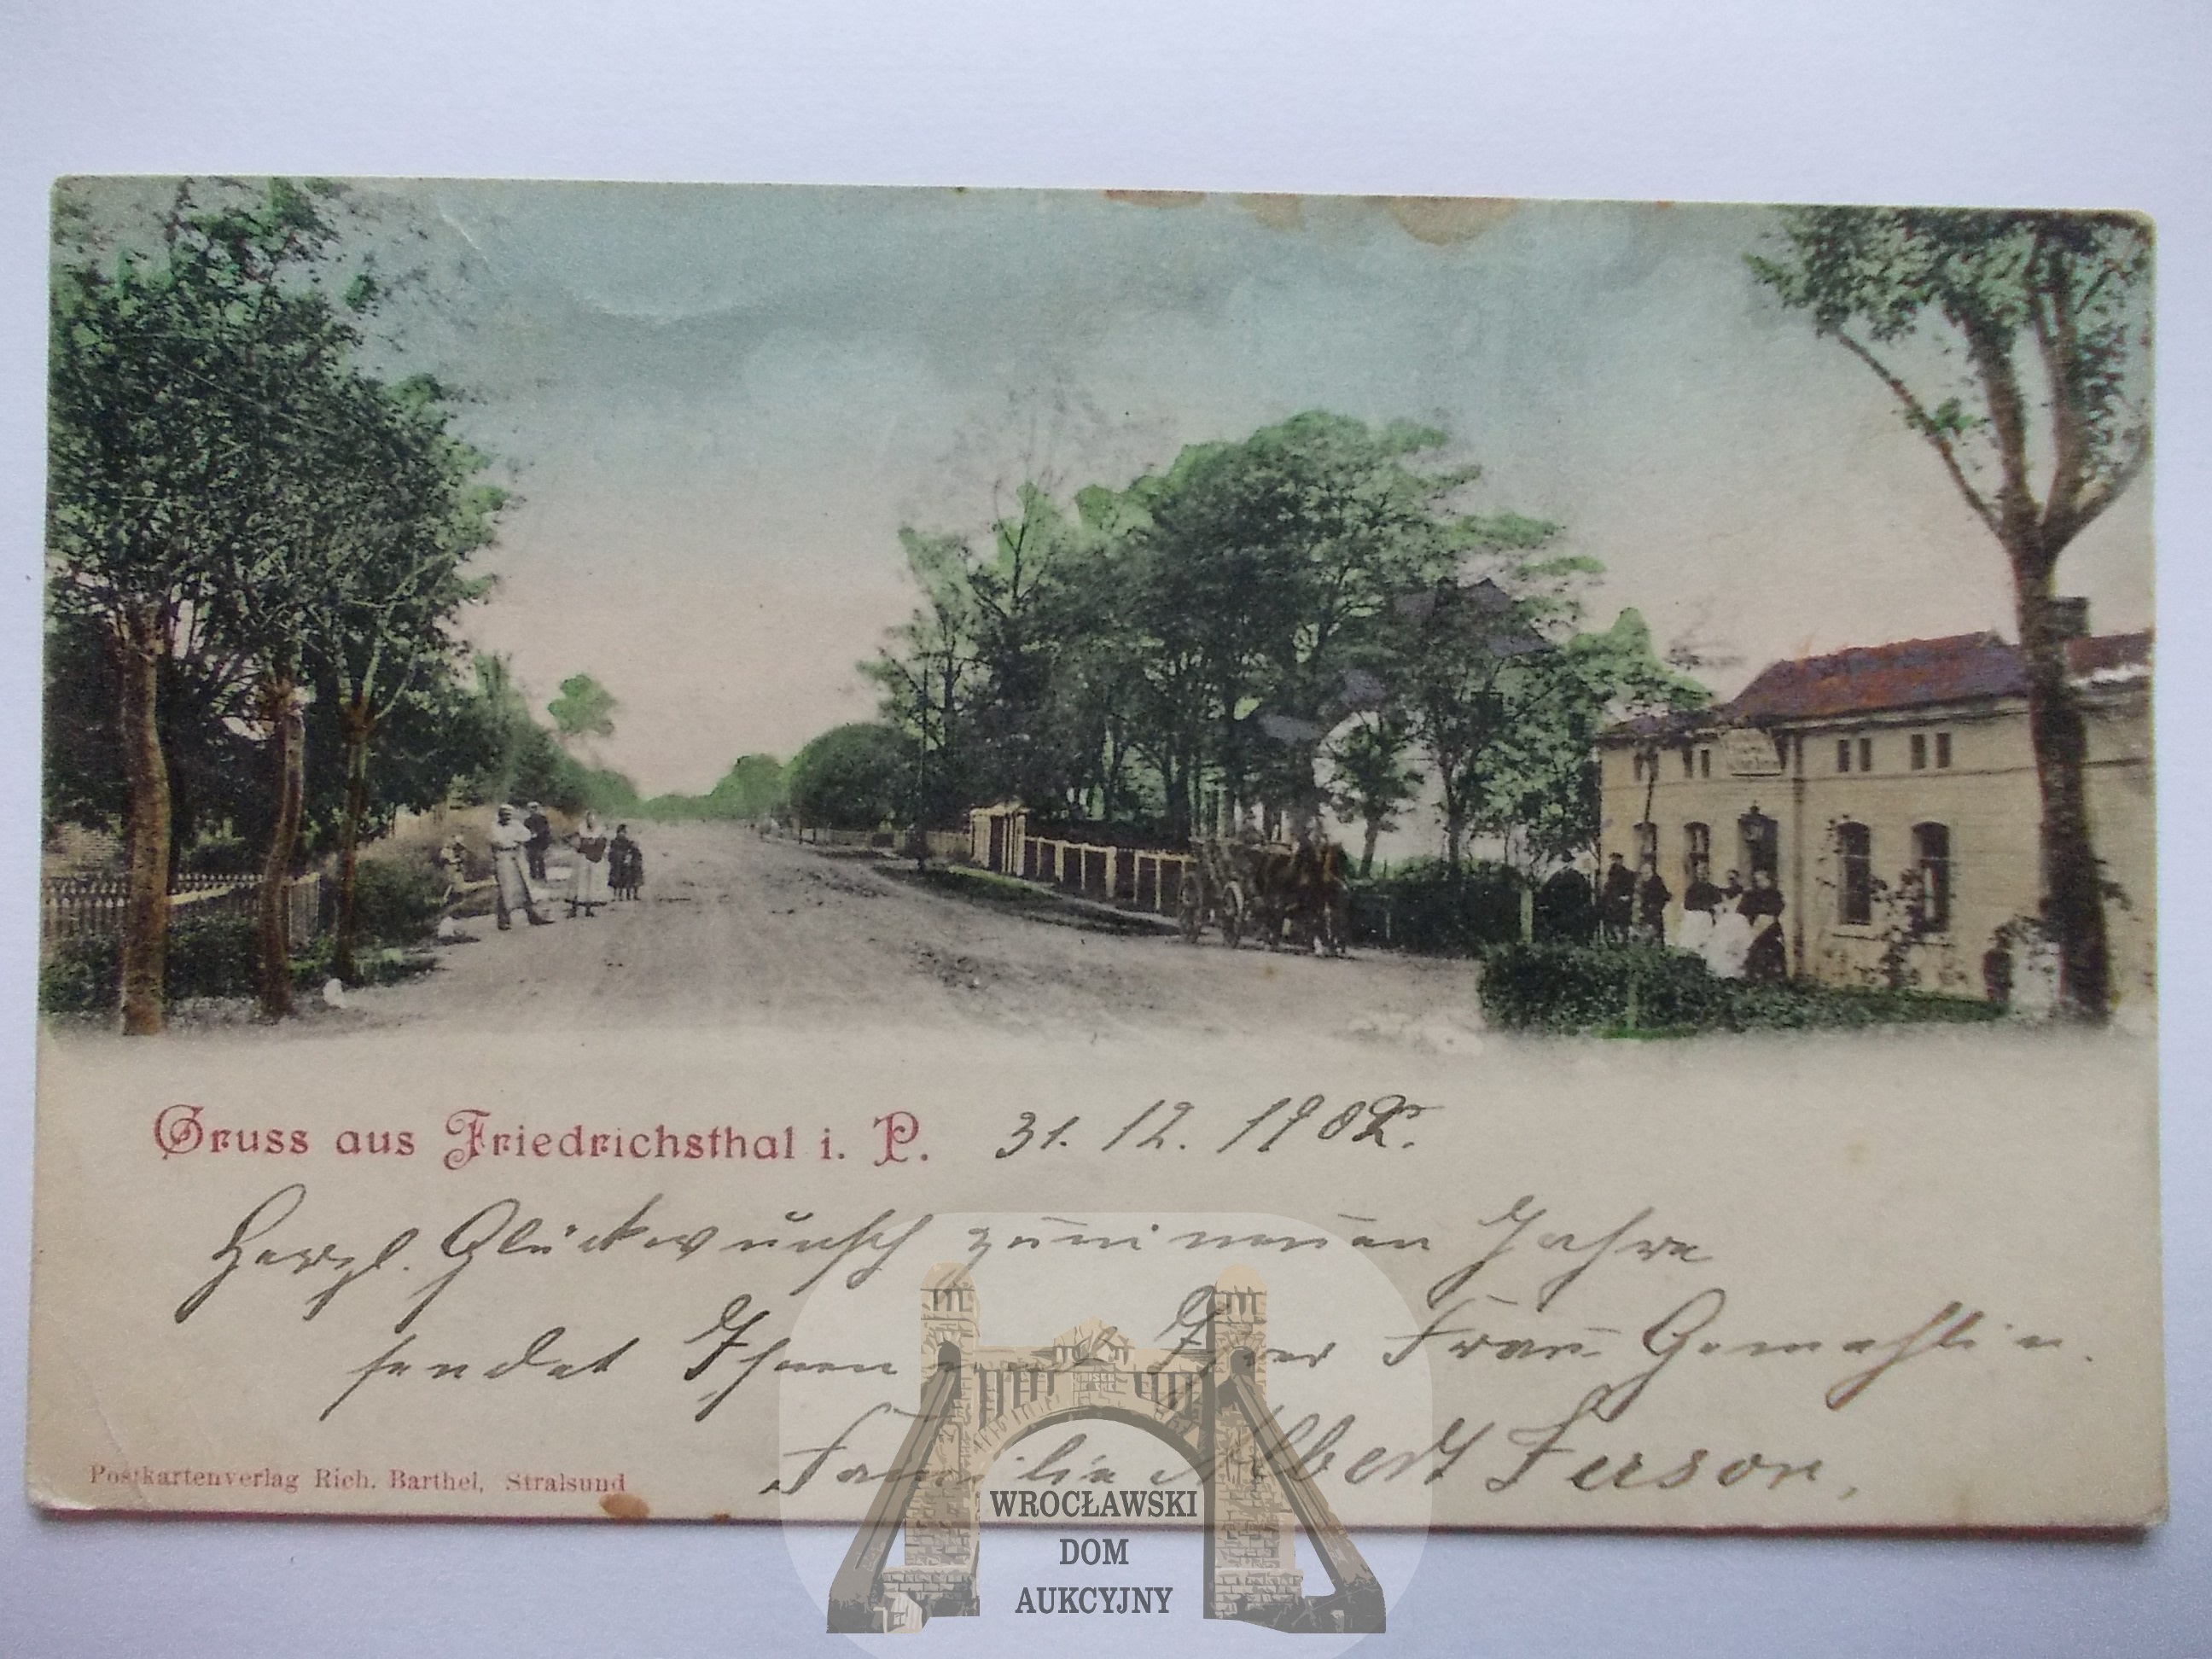 Gruss aus Friedrichsthal i. P. 31. 12. 1902.
Herzl. Glückwunsch zum neuen Jahre
sendet Ihnen und Ihrer Frau Gemahlin.
Familie Albert
Postkartenverlag Rich. Barthel, Stralsund
WROCŁAWSKI
DOM
AUKCYJNY